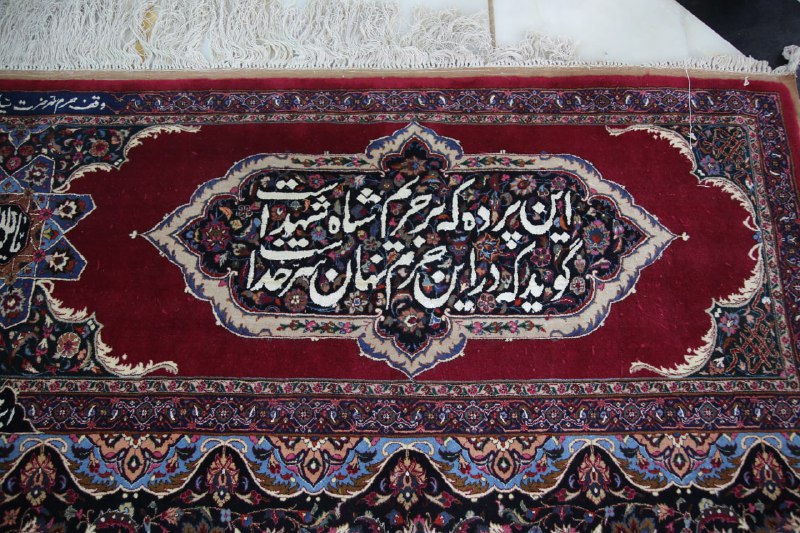 وقف حرم حضرت
این پرده که بر حریم شاه شهداست
گوید که در این حرم نهان سر خداست